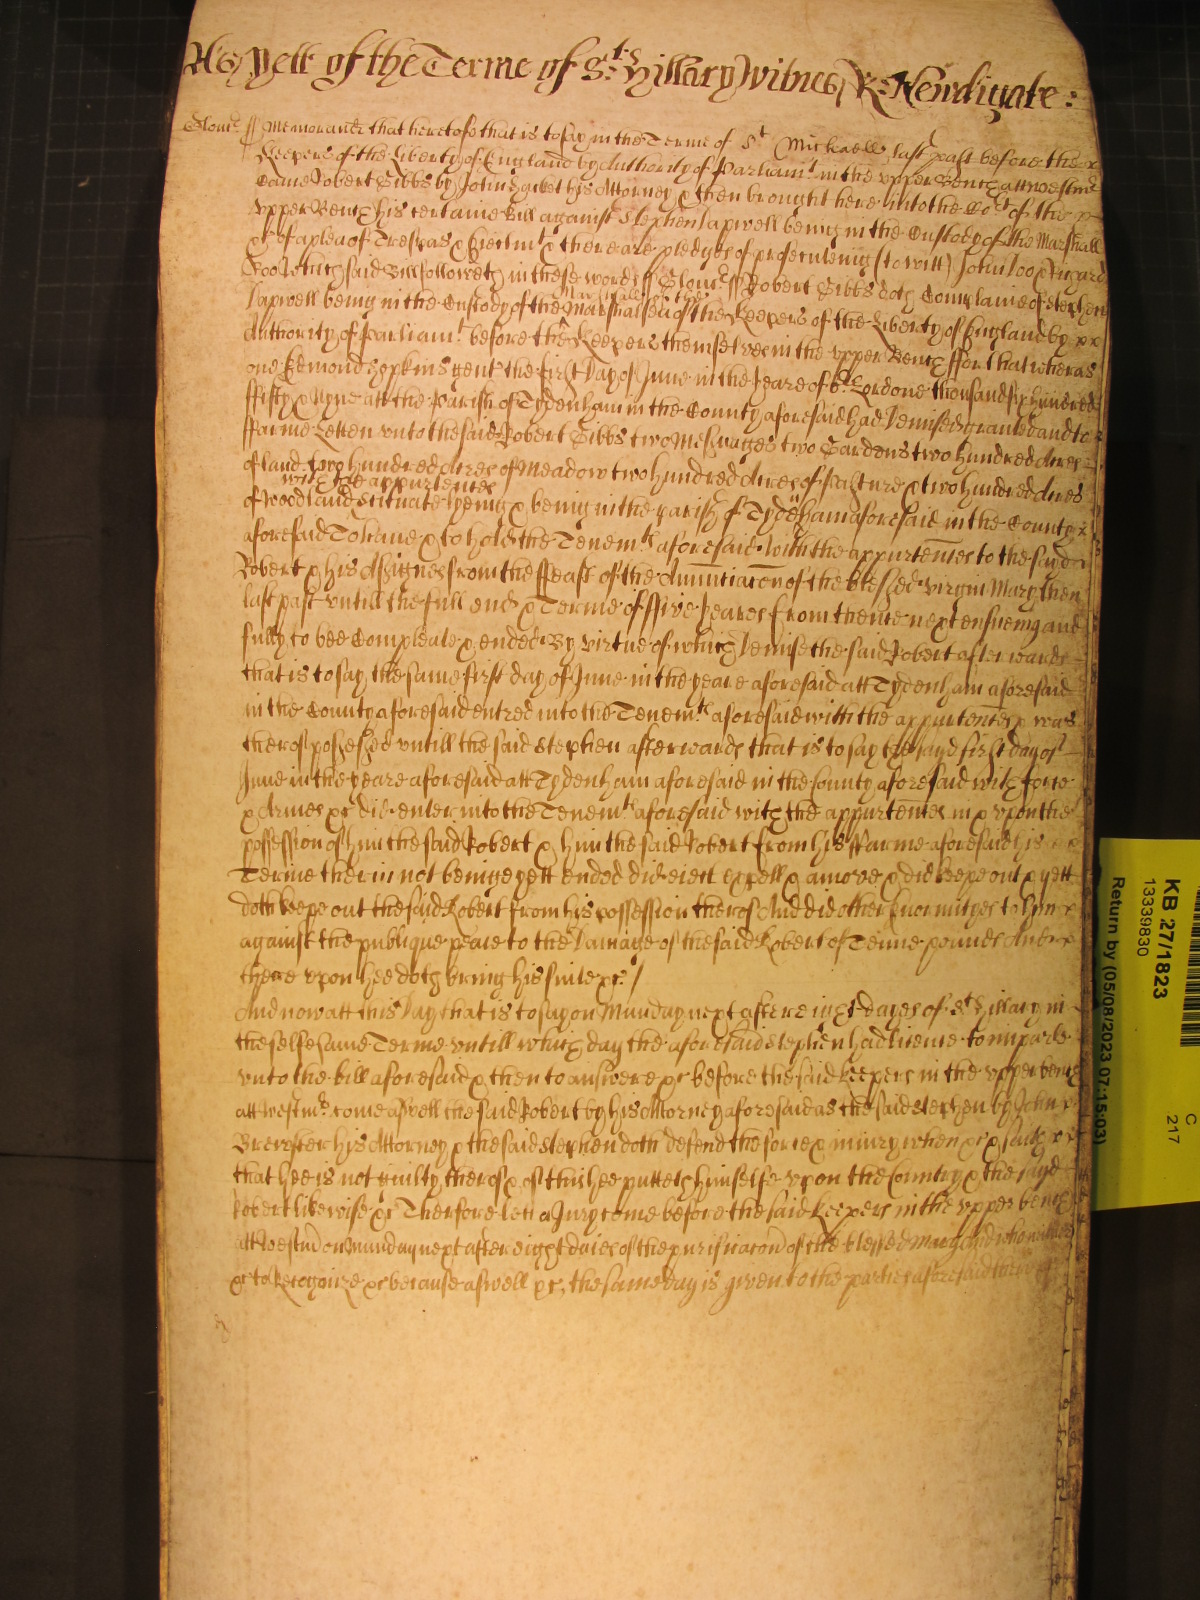 As yett of the Terme of St. Hillary Witnes R: Newdigate:
Glouc ss Memorand that heretofore that is to say in the Terme of St Michaell last past before the
Keepers of the Liberty of England by Authority of Parliamt in the upper Bench att Westmr
Came Robert Gibbs by John his Attorney & then brought here into the Cort of the
upper Bench his certaine Bill against Stephen Lapwell being in the Custody of the Marshall
&c of a plea of Trespas & Eiectmt & there are pledges of prosecuteing (to witt) John Doo & Richard
Roo Which said Bill followeth in these words ss Glouc ss Robert Gibbs doth Complaine of Stephen
Lapwell being in the Custody of the Marshall of the Marshalsea of the Keepers of the Liberty of England by
Authority of Parliamt before the Keepers themselves in the upper Bench ffor that wheras
one Edmond Hopkins gent the first Day of June in the Yeare of or Lord one thousand six hundred
ffifty & Nyne att the Parish of Tydenham in the County aforesaid had Demised graunted and to
ffarme Letten unto the said Robert Gibbs two Messuages two Gardens two hundred Acres
of land two hundred Acres of Meadow two hundred Acres of Pasture & two hundred Acres
of Woodland with the appurtences Scituate lyeing & being in the parish of Tydenham aforesaid in the County
aforesaid To have & to hold the Tenemts aforesaid with the appurtences to the sayd
Robert & his Assignes from the ffeast of the Annunciacon of the blessed virgin Mary then
last past untill the full end & Terme of ffive Yeares from thence next ensueing and
fully to bee Compleate & ended By virtue of which Demise the said Robert afterwards
that is to say the same first day of June in the yeare aforesaid att Tydenham aforesaid
in the County aforesaid entred into the Tenemts aforesaid with the appurtences & was
therof possessed untill the said Stephen afterwards that is to say the sayd first day of
June in the yeare aforesaid att Tydenham aforesaid in the County aforesaid with force
& Armes &c did enter into the Tenemts aforesaid with the appurtences in & upon the
possession of him the said Robert & him the said Robert from his ffarme aforesaid his
Terme therin not being yett ended did eiect expell & amove & did keepe out & yett
doth keepe out the said Robert from his possession therof And did other Enormityes to him
against the publique peace to the Damage of the said Robert of Tenne pounds And
there upon hee doth bring his suite &c /
And now att this Day that is to say on Munday next after eight dayes of St Hillary in
the selfe same Terme untill which day the aforesaid Stephen had licence to imparle
unto the bill aforesaid & then to answere &c before the said Keepers in the upper bench
att Westmr come aswell the said Robert by his Attorney aforesaid as the said Stephen by John
Brewster his Attorney & the said Stephen doth defend the force & iniury when &c & saith
that hee is not guilty therof & of this hee putteth himselfe upon the Country & the sayd
Robert likewise &c Therfore lett a Jury come before the said Keepers in the upper bench
att Westmr on Munday next after eight daies of the purificacon of the blessed Mary and who neither
&c to Recognize &c because aswell &c the same day is given to the parties aforesaid there
KB 27/1823
13339830
C
217
Return by (05/08/2023 07:15:03)